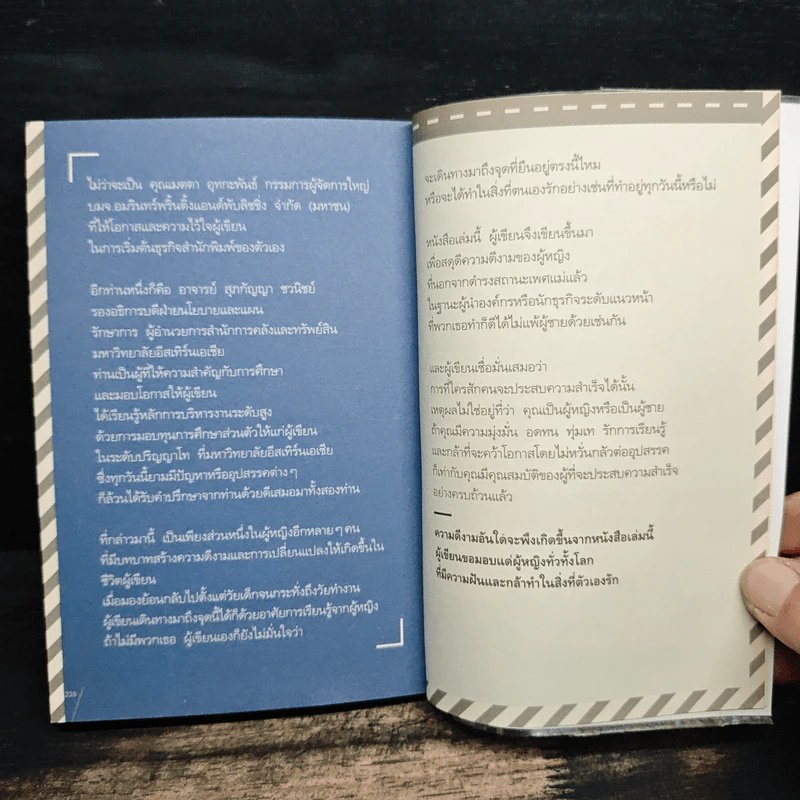 ไม่ว่าจะเป็น คุณเมตตา อุทกะพันธ์ กรรมการผู้จัดการใหญ่
บมจ.อมรินทร์พริ้นติ้งแอนด์พับลิชชิ่ง จำกัด (มหาชน)
ที่ให้โอกาสและความไว้ใจผู้เขียน
ในการเริ่มต้นธุรกิจสำนักพิมพ์ของตัวเอง
อีกท่านหนึ่งก็คือ อาจารย์ สุภกัญญา ชวนิชย์
รองอธิการบดีฝ่ายนโยบายและแผน
รักษาการ ผู้อำนวยการสำนักการคลังและทรัพย์สิน
มหาวิทยาลัยอีสเทิร์นเอเชีย
ท่านเป็นผู้ที่ให้ความสำคัญกับการศึกษา
และมอบโอกาสให้ผู้เขียน
ได้เรียนรู้หลักการบริหารงานระดับสูง
ด้วยการมอบทุนการศึกษาส่วนตัวให้แก่ผู้เขียน
ในระดับปริญญาโท ที่มหาวิทยาลัยอีสเทิร์นเอเชีย
ซึ่งทุกวันนี้ยามมีปัญหาหรืออุปสรรคต่างๆ
ก็ล้วนได้รับคำปรึกษาจากท่านด้วยดีเสมอมาทั้งสองท่าน
ที่กล่าวมานี้ เป็นเพียงส่วนหนึ่งในผู้หญิงอีกหลายๆ คน
ที่มีบทบาทสร้างความดีงามและการเปลี่ยนแปลงให้เกิดขึ้นใน
ชีวิตผู้เขียน
เมื่อมองย้อนกลับไปตั้งแต่วัยเด็กจนกระทั่งถึงวัยทำงาน
ผู้เขียนเดินทางมาถึงจุดนี้ได้ก็ด้วยอาศัยการเรียนรู้จากผู้หญิง
ถ้าไม่มีพวกเธอ ผู้เขียนเองก็ยังไม่มั่นใจว่า
228
จะเดินทางมาถึงจุดที่ยืนอยู่ตรงนี้ไหม
หรือจะได้ทำในสิ่งที่ตนเองรักอย่างเช่นที่ทำอยู่ทุกวันนี้หรือไม่
หนังสือเล่มนี้ ผู้เขียนจึงเขียนขึ้นมา
เพื่อสดุดีความดีงามของผู้หญิง
ที่นอกจากดำรงสถานะเพศแม่แล้ว
ในฐานะผู้นำองค์กรหรือนักธุรกิจระดับแนวหน้า
ที่พวกเธอทำก็ดีได้ไม่แพ้ผู้ชายด้วยเช่นกัน
และผู้เขียนเชื่อมั่นเสมอว่า
การที่ใครสักคนจะประสบความสำเร็จได้นั้น
เหตุผลไม่ใช่อยู่ที่ว่า คุณเป็นผู้หญิงหรือเป็นผู้ชาย
ถ้าคุณมีความมุ่งมั่น อดทน ทุ่มเท รักการเรียนรู้
และกล้าที่จะคว้าโอกาสโดยไม่หวั่นกลัวต่ออุปสรรค
ก็เท่ากับคุณมีคุณสมบัติของผู้ที่จะประสบความสำเร็จ
อย่างครบถ้วนแล้ว
ความดีงามอันใดจะพึงเกิดขึ้นจากหนังสือเล่มนี้
ผู้เขียนขอมอบแด่ผู้หญิงทั่วทั้งโลก
ที่มีความฝันและกล้าทำในสิ่งที่ตัวเองรัก